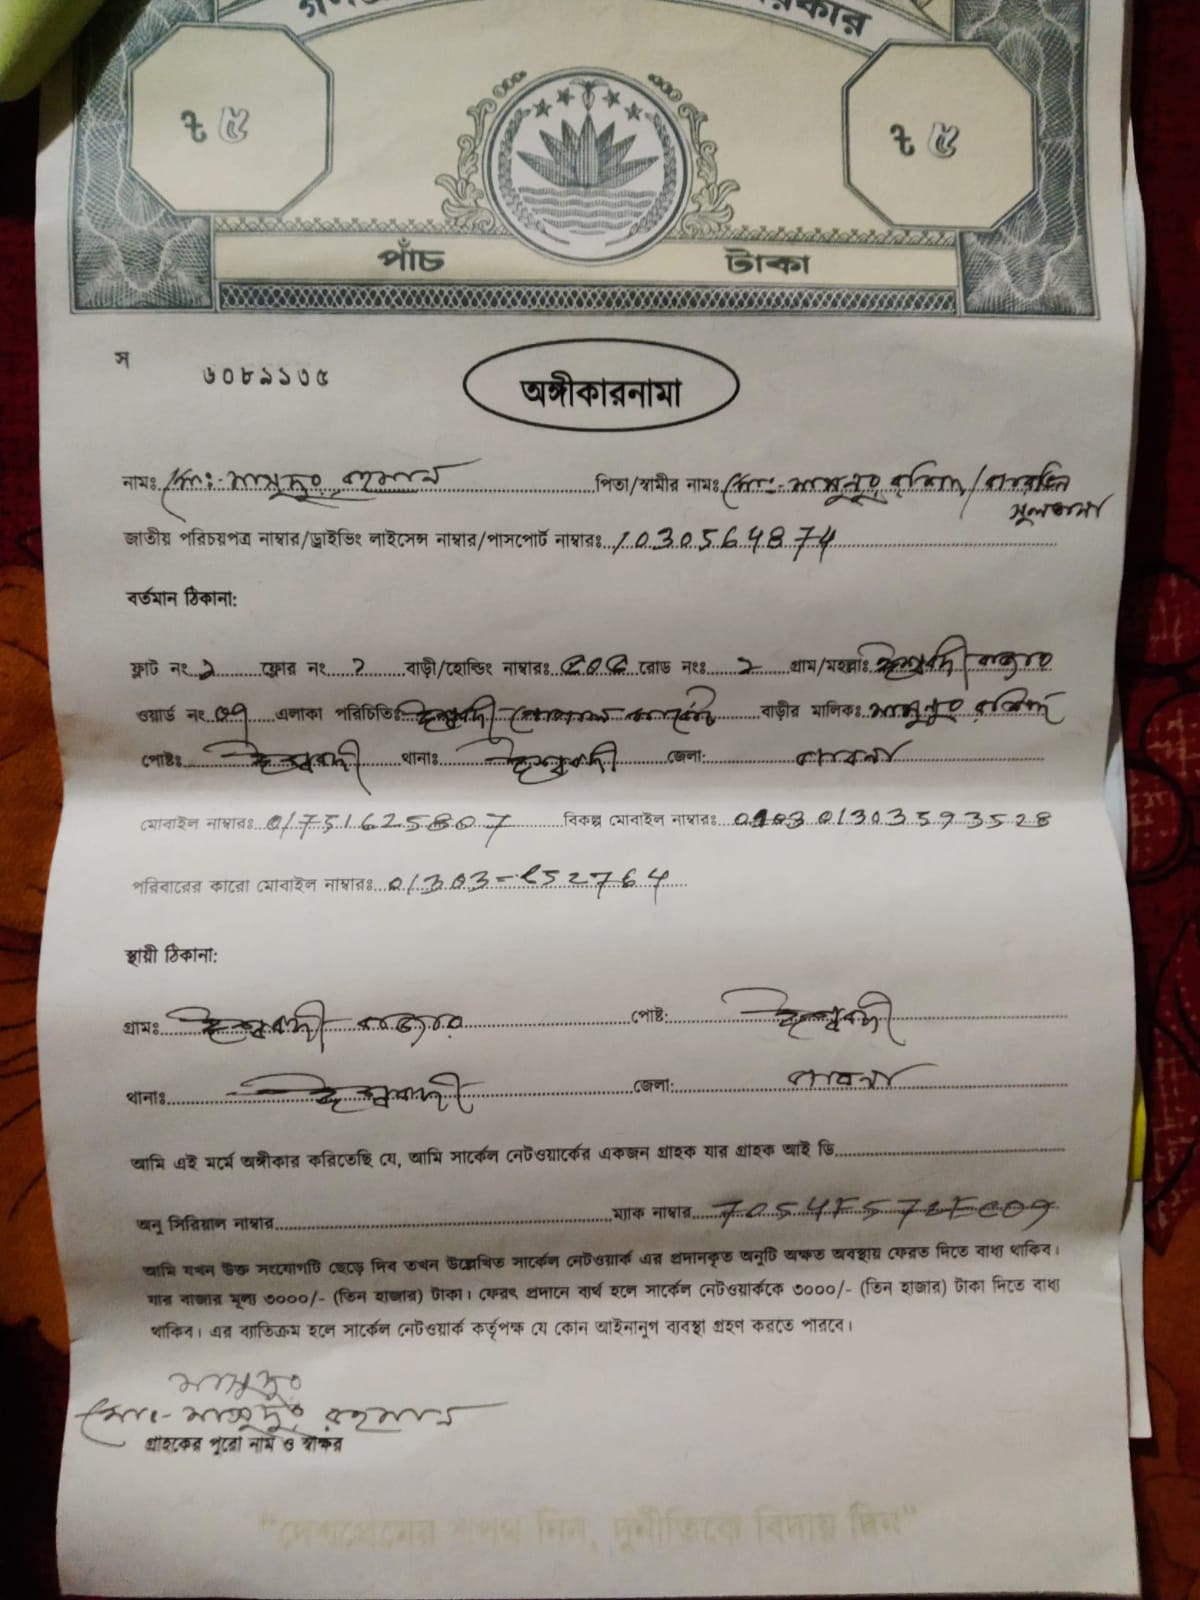 ট ৫
ট ৫
পাঁচ টাকা
স ৬০৮৯১৩৫
অঙ্গীকারনামা
নামঃ মোঃ- মাসুদুর রহমান পিতা/স্বামীর নামঃ মোঃ- মামুনুর রশিদ/
সুলতানা
জাতীয় পরিচয়পত্র নাম্বার/ড্রাইভিং লাইসেন্স নাম্বার/পাসপোর্ট নাম্বারঃ 1030564874
বর্তমান ঠিকানা:
ফ্লাট নং ফ্লোর নং বাড়ী/হোল্ডিং নাম্বারঃ রোড নংঃ গ্রাম/মহল্লাঃ ঈশ্বরদী বাজার
ওয়ার্ড নং এলাকা পরিচিতিঃ ঈশ্বরদী বাড়ীর মালিকঃ মামুনুর রশিদ
পোষ্টঃ ঈশ্বরদী থানাঃ ঈশ্বরদী জেলা: পাবনা
মোবাইল নাম্বারঃ 01751625807 বিকল্প মোবাইল নাম্বারঃ 01303593528
পরিবারের কারো মোবাইল নাম্বারঃ
স্থায়ী ঠিকানা:
গ্রামঃ ঈশ্বরদী বাজার পোষ্ট: ঈশ্বরদী
থানাঃ ঈশ্বরদী জেলা: পাবনা
আমি এই মর্মে অঙ্গীকার করিতেছি যে, আমি সার্কেল নেটওয়ার্কের একজন গ্রাহক যার গ্রাহক আই ডি
অনু সিরিয়াল নাম্বার ম্যাক নাম্বার
আমি যখন উক্ত সংযোগটি ছেড়ে দিব তখন উল্লেখিত সার্কেল নেটওয়ার্ক এর প্রদানকৃত অনুটি অক্ষত অবস্থায় ফেরত দিতে বাধ্য থাকিব।
যার বাজার মূল্য ৩০০০/- (তিন হাজার) টাকা। ফেরৎ প্রদানে ব্যর্থ হলে সার্কেল নেটওয়ার্ককে ৩০০০/- (তিন হাজার) টাকা দিতে বাধ্য
থাকিব। এর ব্যতিক্রম হলে সার্কেল নেটওয়ার্ক কর্তৃপক্ষ যে কোন আইনানুগ ব্যবস্থা গ্রহণ করতে পারবে।
মাসুদুর
মোঃ- মাসুদুর রহমান
গ্রাহকের পুরো নাম ও স্বাক্ষর
"দেশপ্রেমের শপথ নিন, দুর্নীতিকে বিদায় দিন"